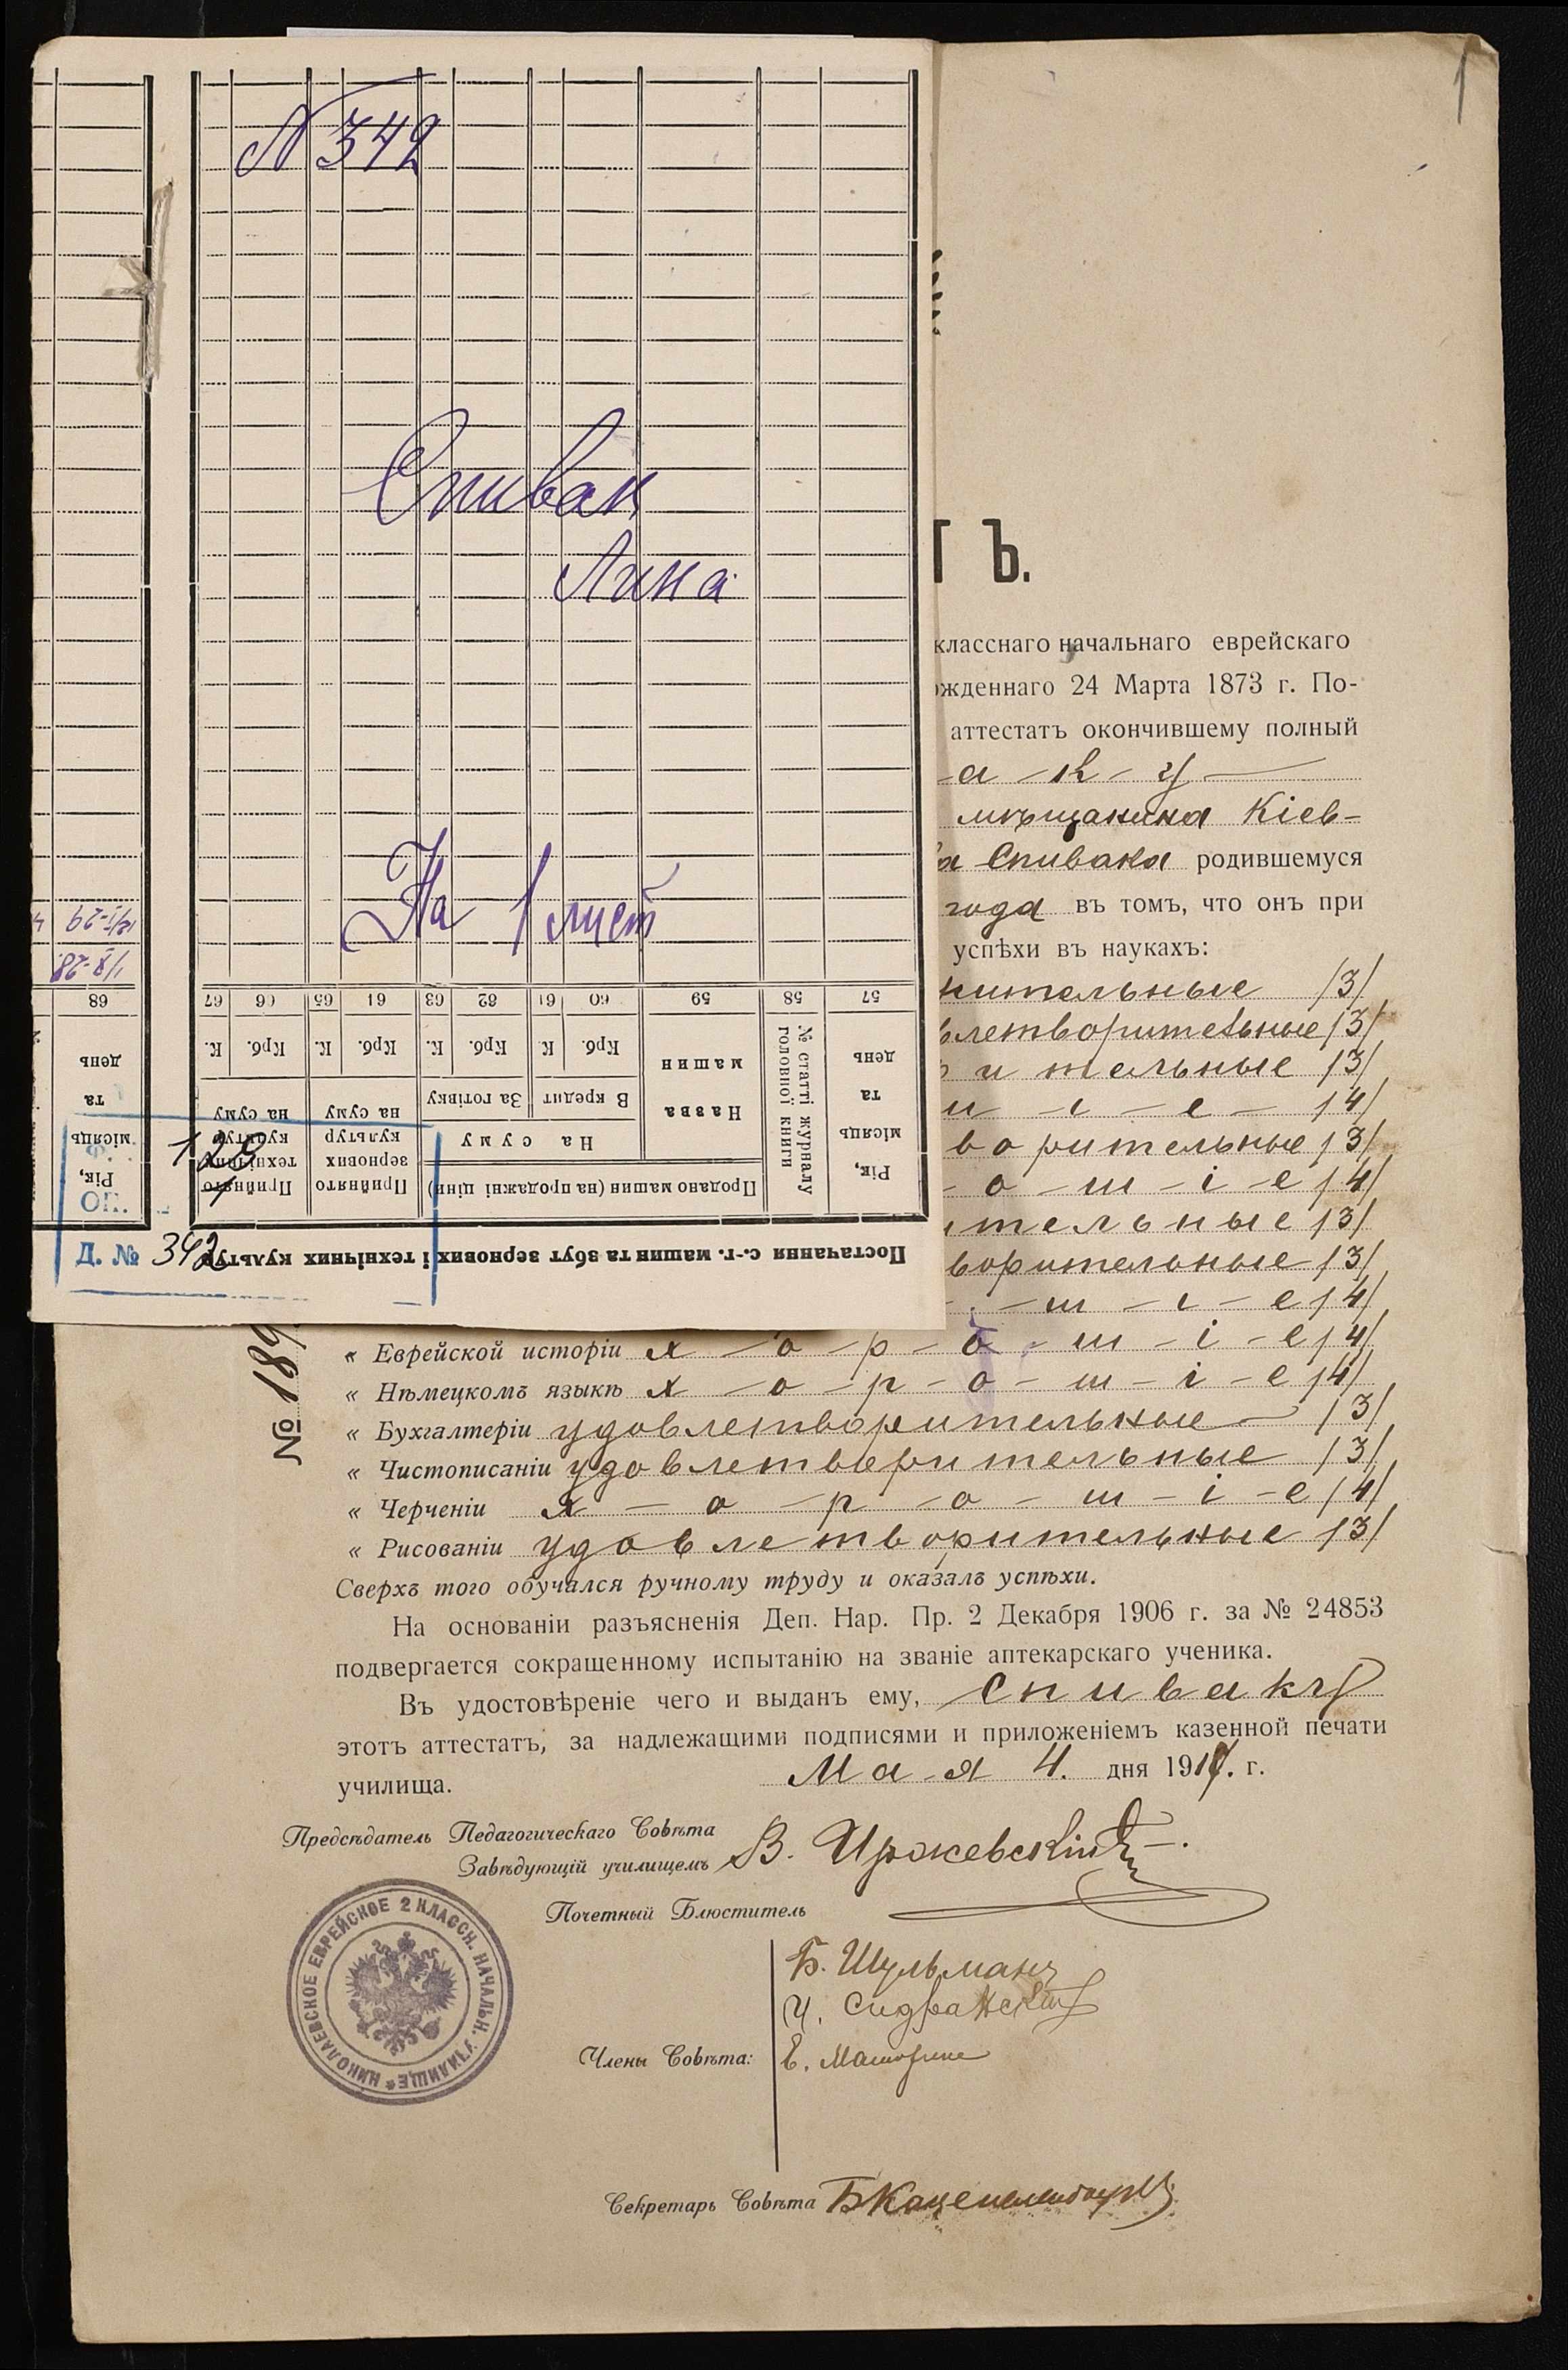 1
N 342
Спивак
Лина
На 1 лист
12/I-29
1/X-28
68
67
66
65
64
63
62
61
60
59
58
57
К.
Крб.
К.
Крб.
К.
Крб.
К
Крб.
день
та
місяць
Рік,
на суму
культур
технічних
Прийнято
на суму
культур
зернових
Прийнято
За готівку
В кредит
На суму
Продано машин (на продажні ціни)
Назва
машин
№ статті журналу
головної книги
Рік,
місяць
та
день
Постачання с.-г. машин та збут зернових і технічних культур
Ф.
ОП.
Д. № 342
ТЪ.
класснаго начальнаго еврейскаго
жденнаго 24 Марта 1873 г. По-
аттестатъ окончившему полный
-а-к-у
мѣщанина Кіев-
а Спивака родившемуся
года въ томъ, что онъ при
успѣхи въ наукахъ:
ительные /3/
влетворительные /3/
ительные /3/
и-і-е- /4/
ворительные /3/
-о-ш-і-е /4/
ительные /3/
ворительные /3/
-ш-і-е /4/
« Еврейской исторіи х-о-р-о-ш-і-е /4/
« Нѣмецкомъ языкѣ х-о-р-о-ш-і-е /4/
« Бухгалтеріи удовлетворительные /3/
« Чистописаніи удовлетворительные /3/
« Черченіи х-о-р-о-ш-і-е /4/
« Рисованіи удовлетворительные /3/
Сверхъ того обучался ручному труду и оказалъ успѣхи.
На основаніи разъясненія Деп. Нар. Пр. 2 Декабря 1906 г. за № 24853
подвергается сокращенному испытанію на званіе аптекарскаго ученика.
Въ удостовѣреніе чего и выданъ ему, Спиваку
этотъ аттестатъ, за надлежащими подписями и приложеніемъ казенной печати
училища. Мая 4. дня 191 г.
№ 189
Предсѣдатель Педагогическаго Совѣта
Завѣдующій училищемъ В.
Почетный Блюститель
Б. Шульманъ
Члены Совѣта:
Секретарь Совѣта
НИКОЛАЕВСКОЕ ЕВРЕЙСКОЕ 2 КЛАССН. НАЧАЛЬН. УЧИЛИЩЕ